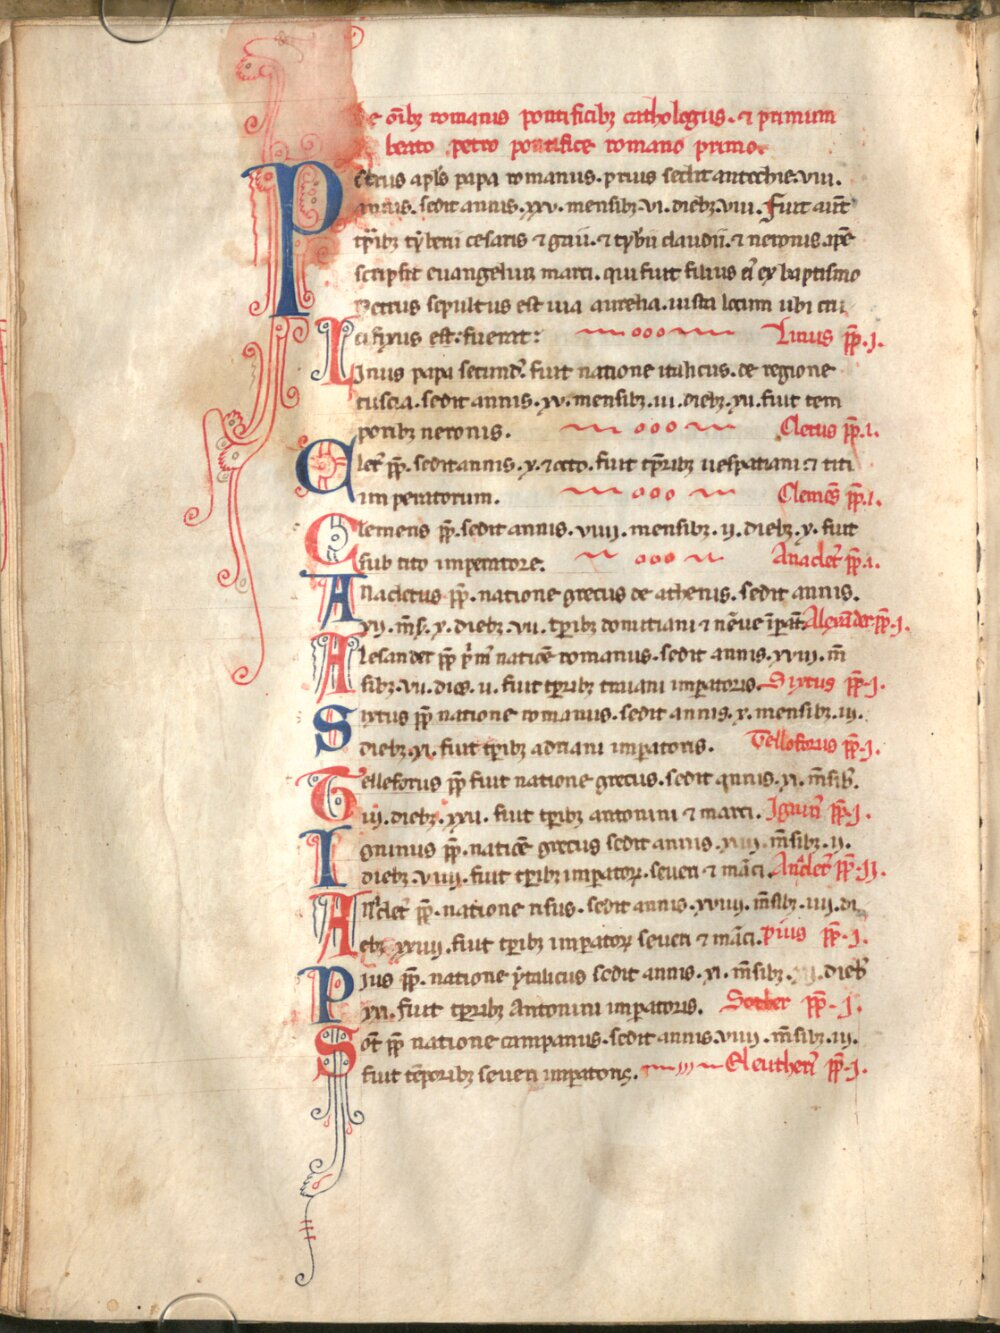 De oı̅bꝫ romanis pontificibꝫ cathologus. ⁊ primum
beato petro pontifice romano primo.
Petrus apl̅s papa romanus. prius sedit antochie. viii.
annis. sedit annis. xxv. mensibꝫ. vi. diebꝫ. viii. Fuit aut̅
tp̅ribꝫ tyberii cesaris ⁊ gaii. ⁊ tyb̅ii claudii. ⁊ neronis. ip̅e
scripsit euangeliu̅ marci. qui fuit filius ei̅ ex baptismo
Petrus sepultus est uia aurelia. iusta locum ubi cru
cifixus est. fuerat: Linus pp̅. i.
Linus papa secund᷒. fuit natione italicus. de regione
tuscia. sedit annis. xv. mensibꝫ. iii. diebꝫ. xii. fuit tem
poribꝫ neronis. Cletus pp̅. i.
Clet᷒ pp̅. sedit annis. x. ⁊ octo. fuit tp̅ribꝫ uespatiani ⁊ titi
imperatorum. Clemes̅ pp̅. i.
Clemens pp̅. sedit annis. viiii. mensibꝫ. ii. diebꝫ. x. fuit
sub tito imperatore. Anaclet᷒ pp̅. i.
Anacletus pp̅. natione grecus de athenis. sedit annis.
xii. m̅s. x. diebꝫ. vii. tp̅ribꝫ domitiani ⁊ ne̅ue i̅pat̅. Alexander pp̅. i.
Alesander pp̅ p̅m̅ natio̅e romanus. sedit annis. xviii. m̅
sibꝫ. vii. dieb̅. ii. fuit tp̅ribꝫ traiani imp̅atoris. Sixtus pp̅. i.
Sixtus pp̅ natione romanus. sedit annis. x. mensibꝫ. iii.
diebꝫ. xi. fuit tp̅ribꝫ adriani imp̅atoris. Telleforus pp̅. i.
Telleforus pp̅ fuit natione grecus. sedit annis. xi. m̅sib̅.
iii. diebꝫ. xxii. fuit tp̅ribꝫ antonini ⁊ marci. Iginius pp̅. i.
Igninus pp̅. natio̅e grecus sedit annis. m̅sibꝫ. ii.
diebꝫ. viiii. fuit tp̅ribꝫ imp̅atoꝝ. seueri ⁊ ma̅ci. An̅clet᷒ pp̅. ii.
An̅clet᷒ pp̅. natione sedit annis. xviiii. m̅sibꝫ. iiii. di
ebꝫ xxiiii. fuit tp̅ribꝫ imp̅atoꝝ seueri ⁊ ma̅ci. pius pp̅. i.
Pius pp̅. natione ytalicus sedit annis. xi. m̅sibꝫ. dieb̅
xxi. fuit tp̅ribꝫ Antonini imp̅atoris. Sother pp̅. i.
Sot̅ pp̅ natione campanus. sedit annis. viiii. m̅sibꝫ. iii.
fuit te̅poribꝫ seueri imp̅atoris. Eleutheri᷒ pp̅. i.